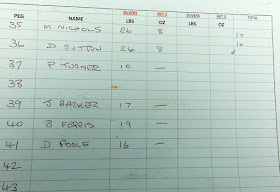 PEG NAME SILVERS LBS NET 1 OZ SILVERS NET 2 TOTAL
35 M NICHOLS 26 8
36 D SUTTON 26 8
37 P TURNER 10 —
38
39 J BARKER 17 —
40 B FERRIS 19 —
41 D POOLE 16 —
42
43